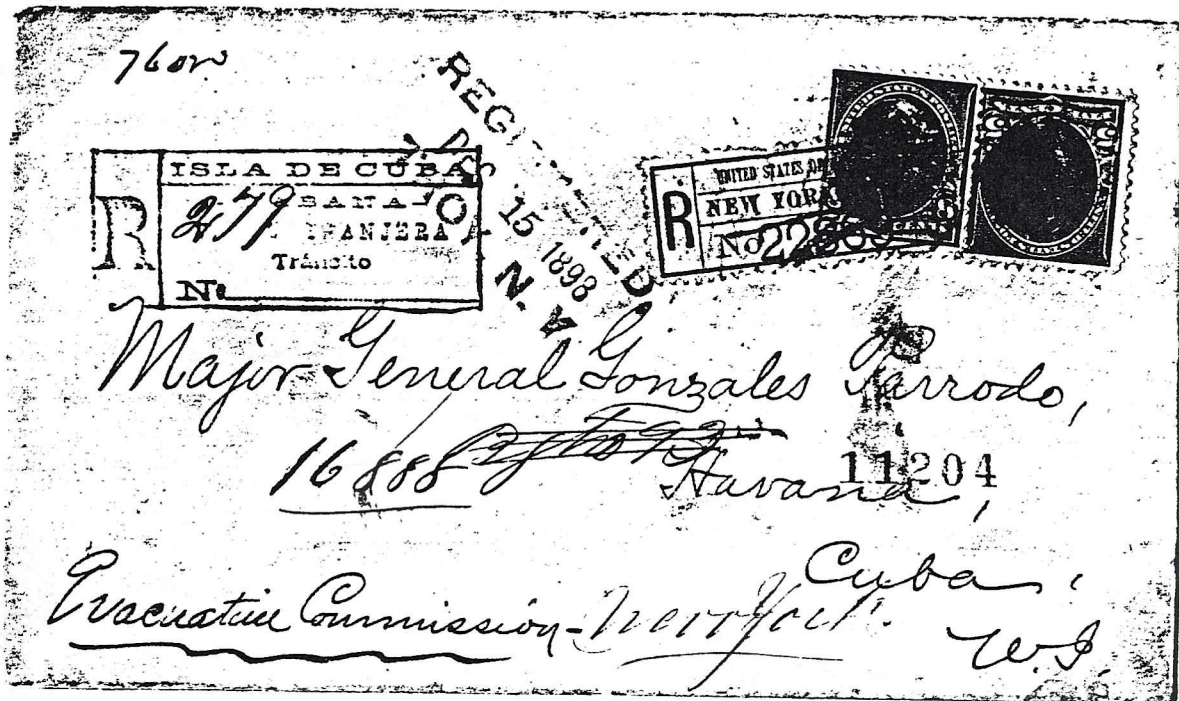 REGISTERED
DEC 15 1898
N.Y.
ISLA DE CUBA
R
279
TRANJERA
Tránsito
No
UNITED STATES OF
R
NEW YORK
No
Major General Gonzales Parrodo,
16888
11204
Havana,
Cuba,
Evacuation Commission - New York.
W.I.